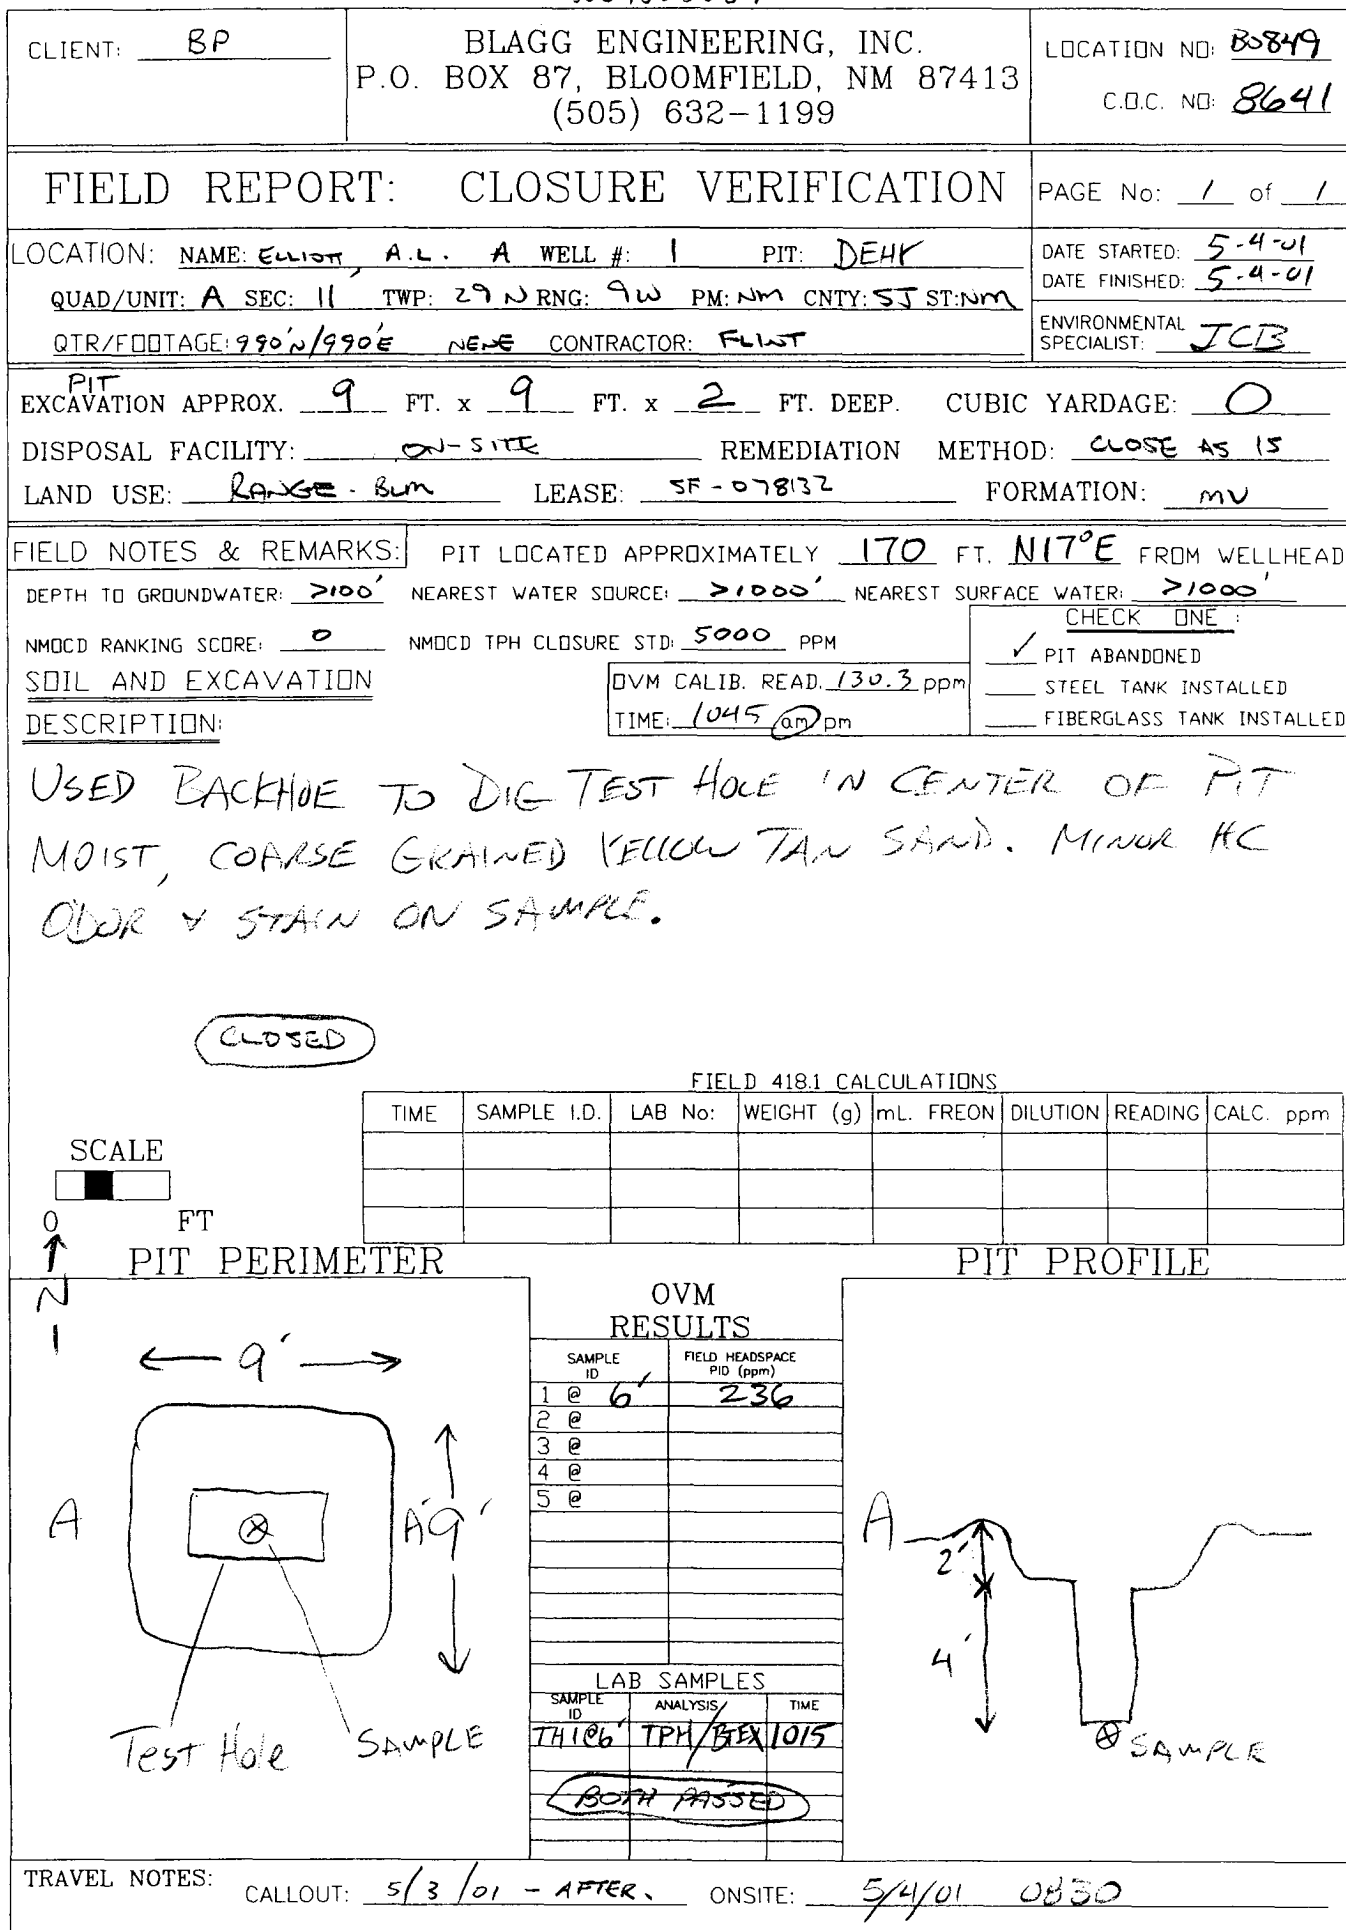 CLIENT: BP
BLAGG ENGINEERING, INC.
P.O. BOX 87, BLOOMFIELD, NM 87413
(505) 632-1199
LOCATION NO: B0849
C.O.C. NO: 8641
FIELD REPORT: CLOSURE VERIFICATION
PAGE No: 1 of 1
LOCATION: NAME: ELLIOTT, A.L. A WELL #: 1 PIT: DEHY
QUAD/UNIT: A SEC: 11 TWP: 29N RNG: 9W PM: NM CNTY: SJ ST: NM
QTR/FOOTAGE: 990'N/990'E NENE CONTRACTOR: FLINT
DATE STARTED: 5-4-01
DATE FINISHED: 5-4-01
ENVIRONMENTAL
SPECIALIST: JCB
PIT
EXCAVATION APPROX. 9 FT. x 9 FT. x 2 FT. DEEP. CUBIC YARDAGE: 0
DISPOSAL FACILITY: ON-SITE REMEDIATION METHOD: CLOSE AS IS
LAND USE: RANGE - BLM LEASE: SF-078132 FORMATION: MV
FIELD NOTES & REMARKS: PIT LOCATED APPROXIMATELY 170 FT. N17°E FROM WELLHEAD
DEPTH TO GROUNDWATER: >100' NEAREST WATER SOURCE: >1000' NEAREST SURFACE WATER: >1000'
NMOCD RANKING SCORE: 0 NMOCD TPH CLOSURE STD: 5000 PPM
CHECK ONE :
✓ PIT ABANDONED
STEEL TANK INSTALLED
FIBERGLASS TANK INSTALLED
SOIL AND EXCAVATION
DESCRIPTION:
OVM CALIB. READ. 130.3 ppm
TIME: 1045 am pm
USED BACKHOE TO DIG TEST HOLE IN CENTER OF PIT
MOIST, COARSE GRAINED YELLOW TAN SAND. MINOR HC
ODOR & STAIN ON SAMPLE.
CLOSED
FIELD 418.1 CALCULATIONS
TIME SAMPLE I.D. LAB No: WEIGHT (g) mL. FREON DILUTION READING CALC. ppm
SCALE
0 FT
N
PIT PERIMETER
PIT PROFILE
OVM
RESULTS
SAMPLE ID FIELD HEADSPACE PID (ppm)
1 @ 6' 236
2 @
3 @
4 @
5 @
9'
A
A'
9'
Test Hole
SAMPLE
LAB SAMPLES
SAMPLE ID ANALYSIS TIME
TH1@6' TPH/BTEX 1015
BOTH PASSED
A
2'
4'
SAMPLE
TRAVEL NOTES: CALLOUT: 5/3/01 - AFTER. ONSITE: 5/4/01 0830